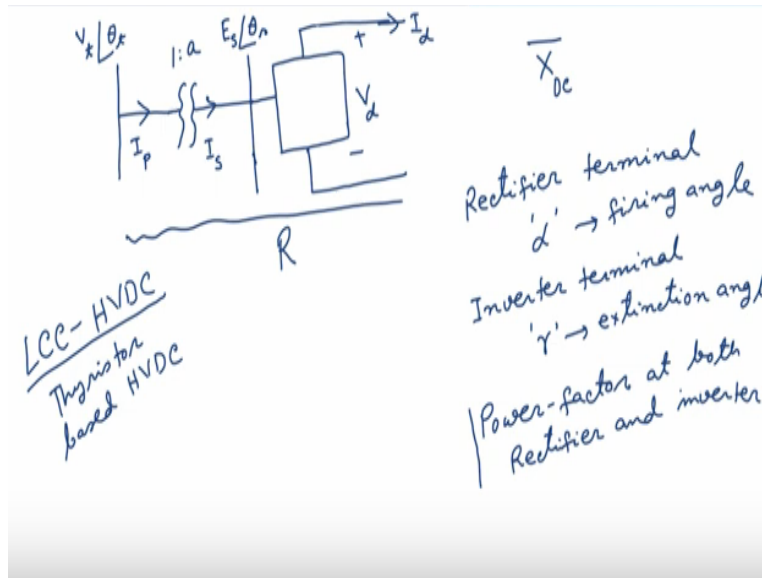 Vₖ∠θₖ
1:a
Eₛ∠θₙ
+
I_d
I_p
Iₛ
V_d
−
R
X̄_DC
LCC-HVDC
Thyristor
based HVDC
Rectifier terminal
'α' → firing angle
Inverter terminal
'γ' → extinction angl
Power-factor at both
Rectifier and inverter